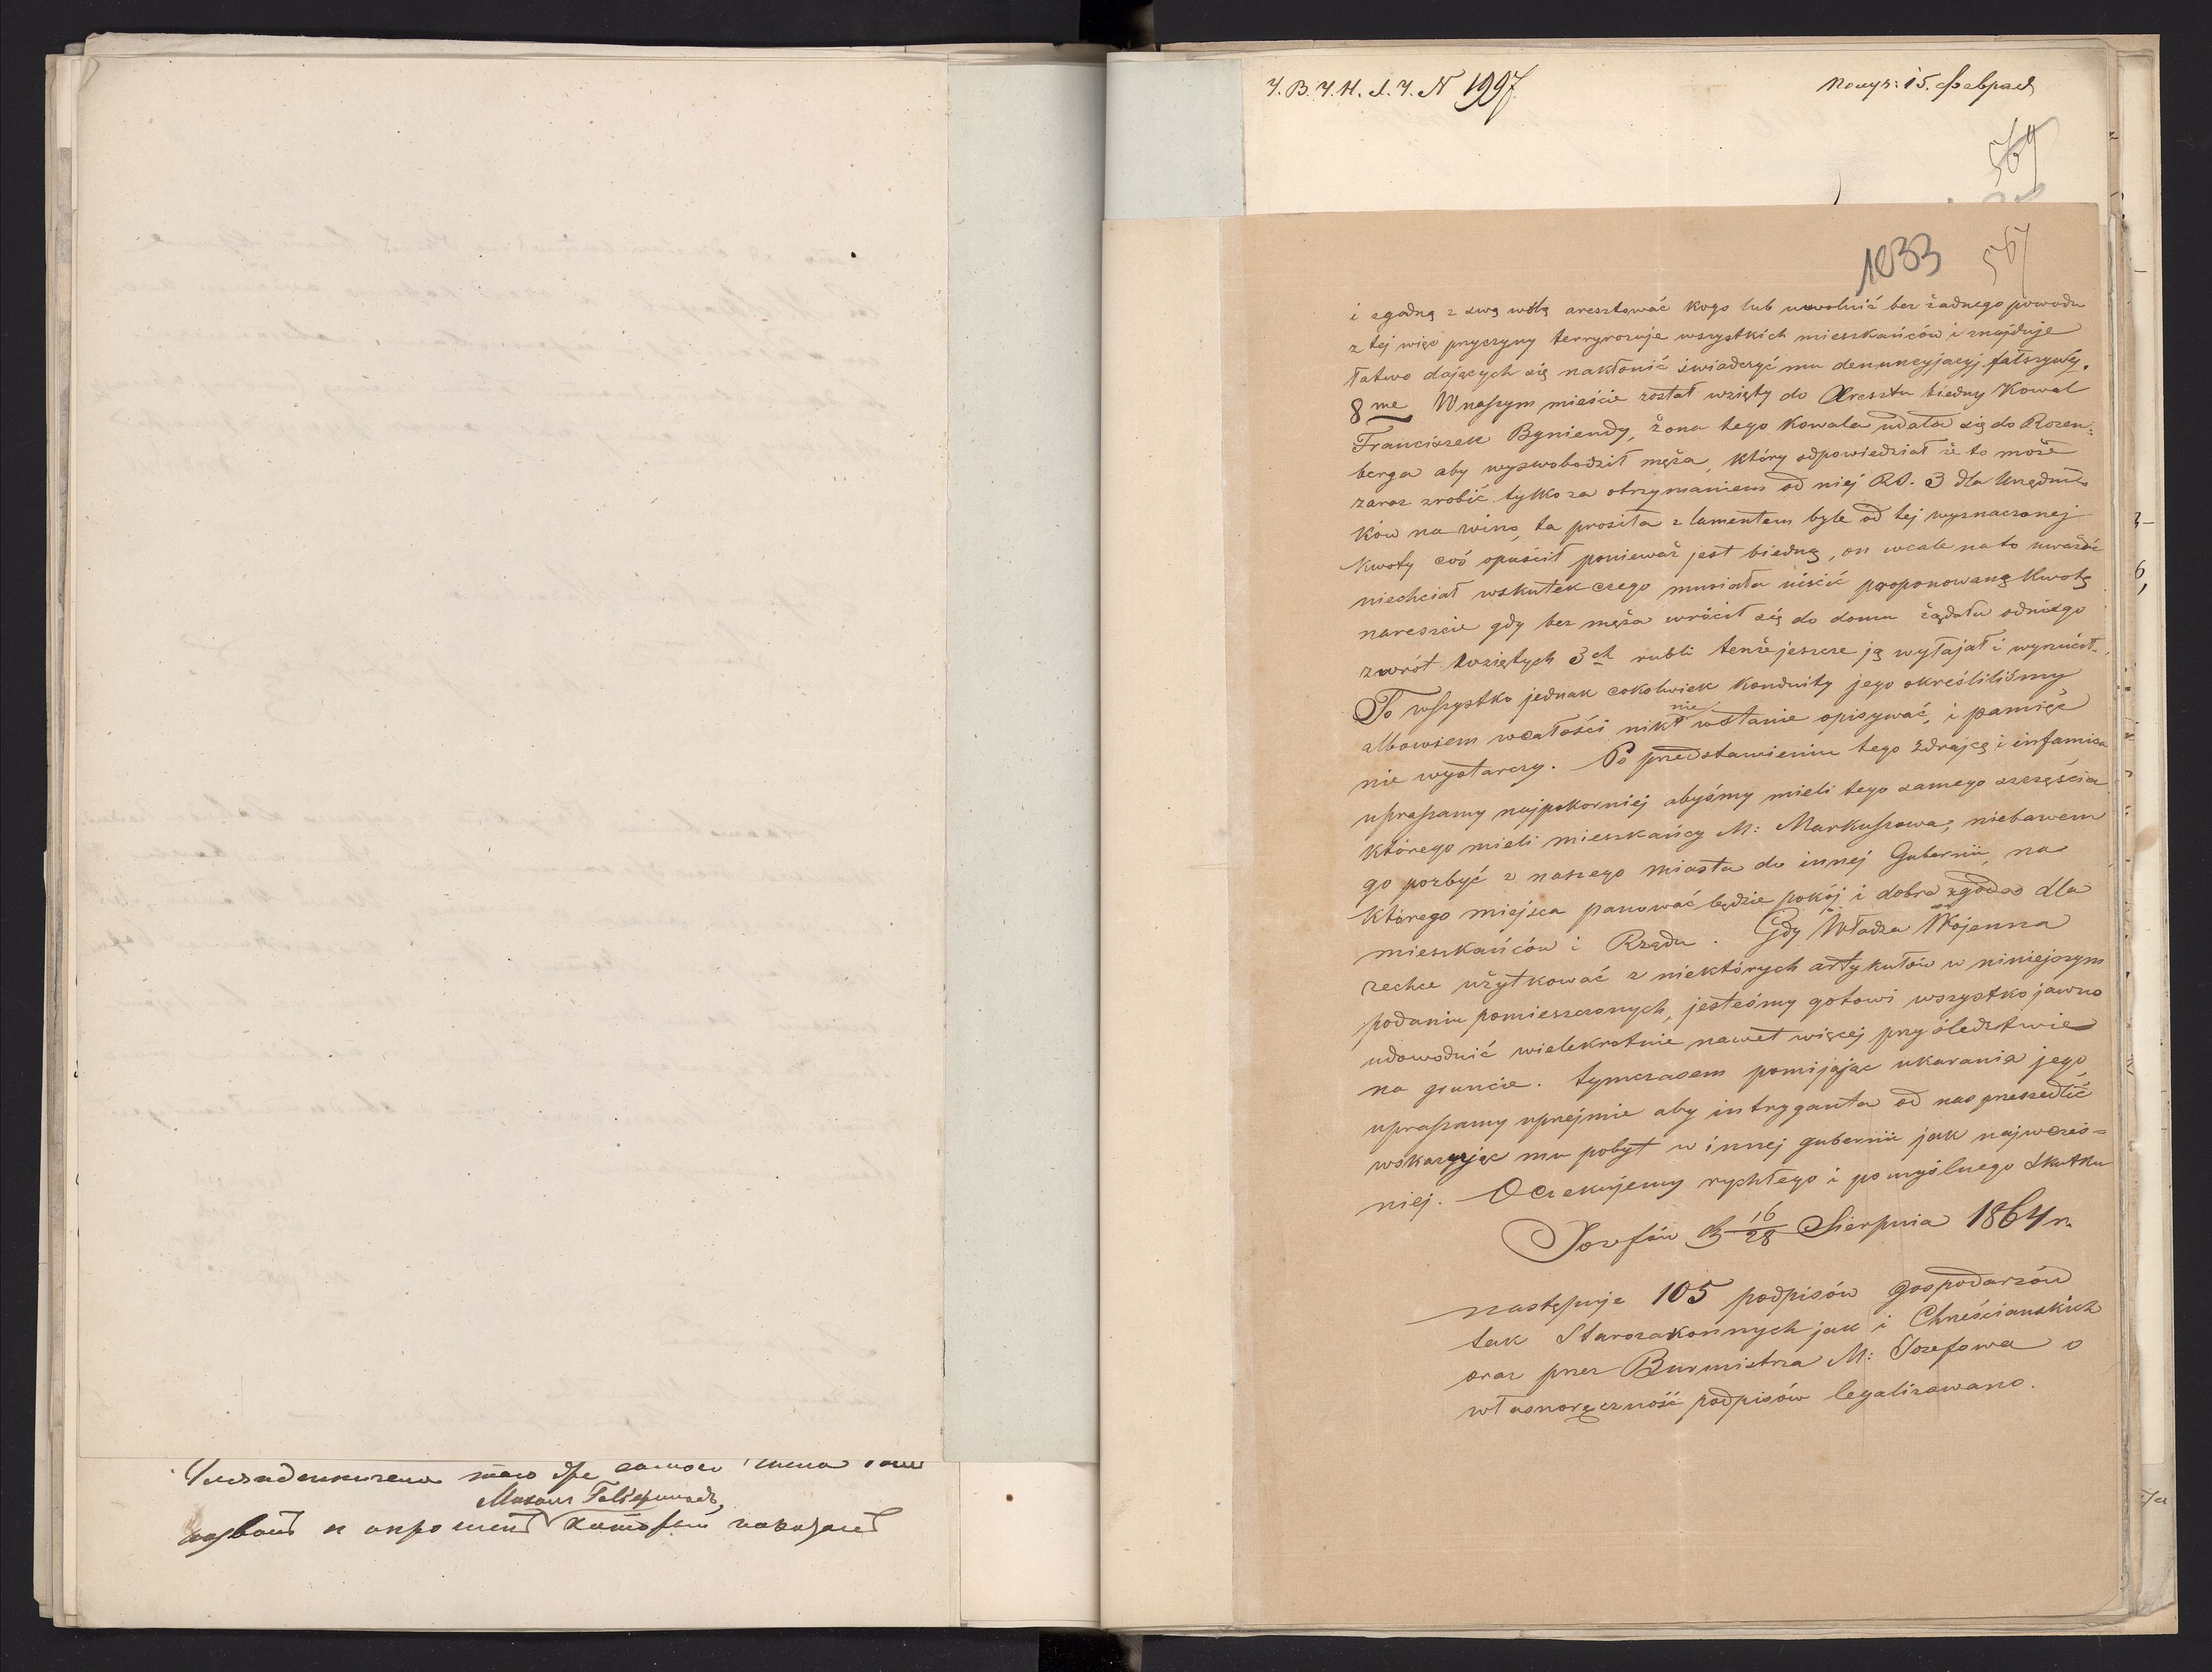 званъ и опрошенъ который показалъ
У. В. У. Н. Л. У. N 1997
Получ: 15. Феврал
569
1033 567
i zgodną z swą wolą aresztować kogo lub uwolnić bez żadnego powodu
z tej więc przyczyny terryrozuje wszystkich mieszkańców i znajduje
łatwo dających się nakłonić świadczyć mu denuncyjacyj fałszywéj.
8me W naszym mieście został wzięty do Aresztu biedny Kowal
Franciszek Bgniendy, żona tego Kowala udała się do Rozen=
berga aby wyswobodził męża, który odpowiedział że to może
zaraz zrobić tylko za otrzymaniem od niéj RS. 3 dla Urzędni
ków na wino, ta prosiła z lamentem byle od téj wyznaczonéj
kwoty coś opuścił ponieważ jest biedną, on wcale na to uważać
niechciał wskutek czego musiała uiścić proponowaną kwotę
nareszcie gdy bez męża wrócił się do domu żądała odniego
zwrót wziętych 3ch rubli tenże jeszcze ją wyłajał i wyrzucił.
To wszystko jednak cokolwiek konduity jego określiliśmy
albowiem wcałości nikt nie wstanie opisywać, i pamięć
nie wystarczy. Po przedstawieniu tego Zdrajcę i infamisa
upraszamy najpokorniéj abyśmy mieli tego samego szczęścia
którego mieli mieszkańcy M: Markuszowa, niebawem
go pozbyć z naszego miasta do innéj Gubernii, na
którego miejsca panować będzie pokój i dobra zgoda dla
mieszkańców i Rządu. Gdy Władza Wojenna
zechce użytkować z niektórych artykułów w niniejszym
podaniu pomieszczonych, jesteśmy gotowi wszystko jawno
udowodnić wielekrotnie nawet więcéj przy śledztwie
na gruncie. tymczasem pomijając ukarania jego
upraszamy uprzejmie aby intryganta od nas przesiedlić
wskazując mu pobyt w innéj gubernii jak najwcześ=
niéj. Oczekujemy rychłego i pomyślnego skutku
Jozefów d 16/28 Sierpnia 1864 r.
następuje 105 podpisów gospodarzów
tak Starozakonnych jak i Chrześcianskich
oraz przez Burmistrza M: Jozefowa o
własnoręczność podpisów legalizowano.